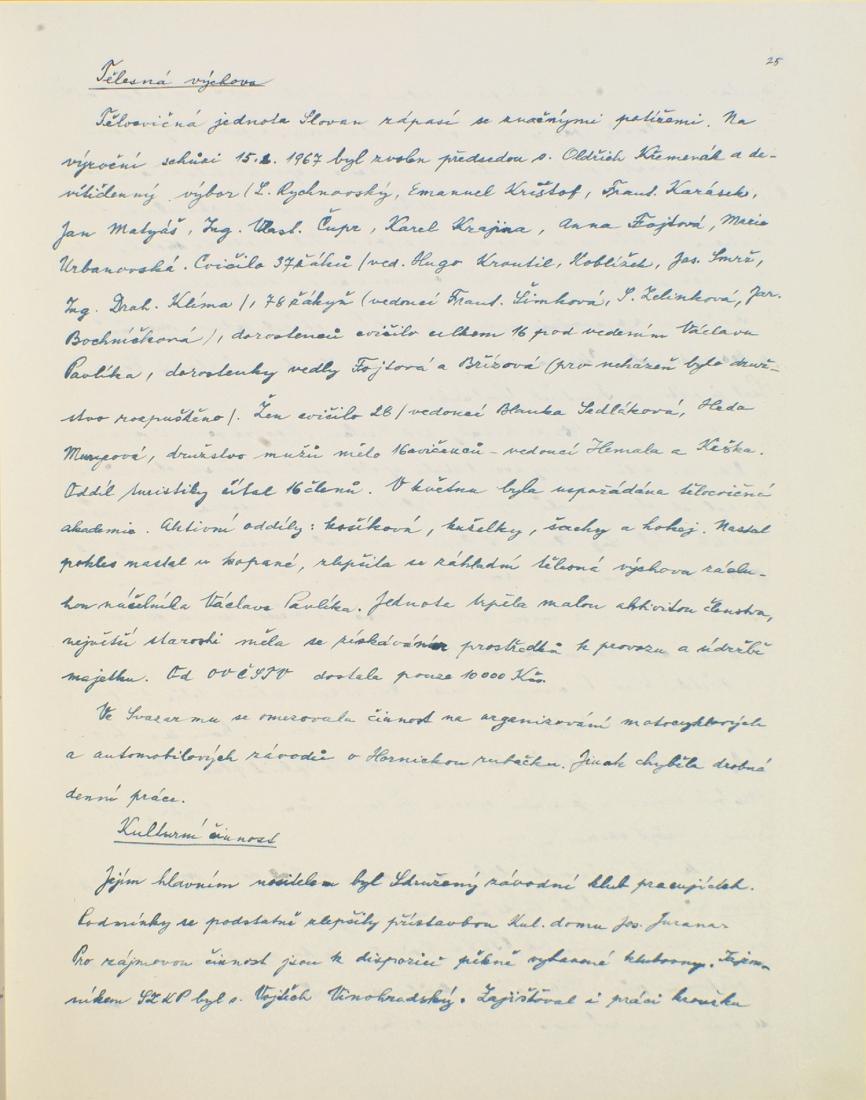 25
Tělesná výchova
Tělocvičná jednota Slovan zápasí se značnými potížemi. Na
výroční schůzi 15.2. 1967 byl zvolen předsedou s. Oldřich Křemenák a de-
vítičlenný výbor (L. Rychnovský, Emanuel Krištof, Frant. Karásek,
Jan Matyáš, Ing. Vlast. Čupr, Karel Krajina, Anna Fojtová, Marie
Urbanovská. Cvičilo 37 žáků /ved. Hugo Kroutil, Koblížek, Jos. Smrž,
Ing. Drah. Klíma /, 78 žákyň (vedoucí Frant. Šimková, S. Zelinková, Jar.
Bochníčková), dorostenců cvičilo celkem 16 pod vedením Václava
Pavlíka, dorostenky vedly Fojtová a Břízová (pro nekázeň bylo druž-
stvo rozpuštěno/. Žen cvičilo 28 /vedoucí Blanka Sedláková, Heda
družstvo mužů mělo 16 cvičenců - vedoucí Hemala a Kežka.
Oddíl turistiky čítal 16 členů. V květnu byla uspořádána tělocvičná
akademie. Aktivní oddíly: košíková, kuželky, šachy a hokej. Nastal
pokles nastal u kopané, zlepšila se základní tělesná výchova záslu-
hou náčelníka Václava Pavlíka. Jednota trpěla malou aktivitou členstva,
největší starosti měla se získáváním prostředků k provozu a údržbě
majetku. Od OVČSTV dostala pouze 10 000 Kčs.
Ve Svazarmu se omezovala činnost na organizování motocyklových
a automobilových závodů o Hornickou rubačku. Jinak chyběla drobná
denní práce.
Kulturní činnost
Jejím hlavním nositelem byl Sdružený závodní klub pracujících.
Podmínky se podstatně zlepšily přístavbou Kul. domu Jos. Jurana.
Pro zájmovou činnost jsou k dispozici pěkně vybavené klubovny. Tajem-
níkem SZKP byl s. Vojtěch Vinohradský. Zajišťoval i práci kroužku